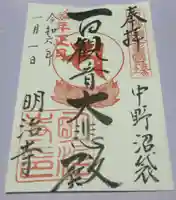 奉拝
中野沼袋
百観音大悲殿
令和六年
一月一日
明治寺